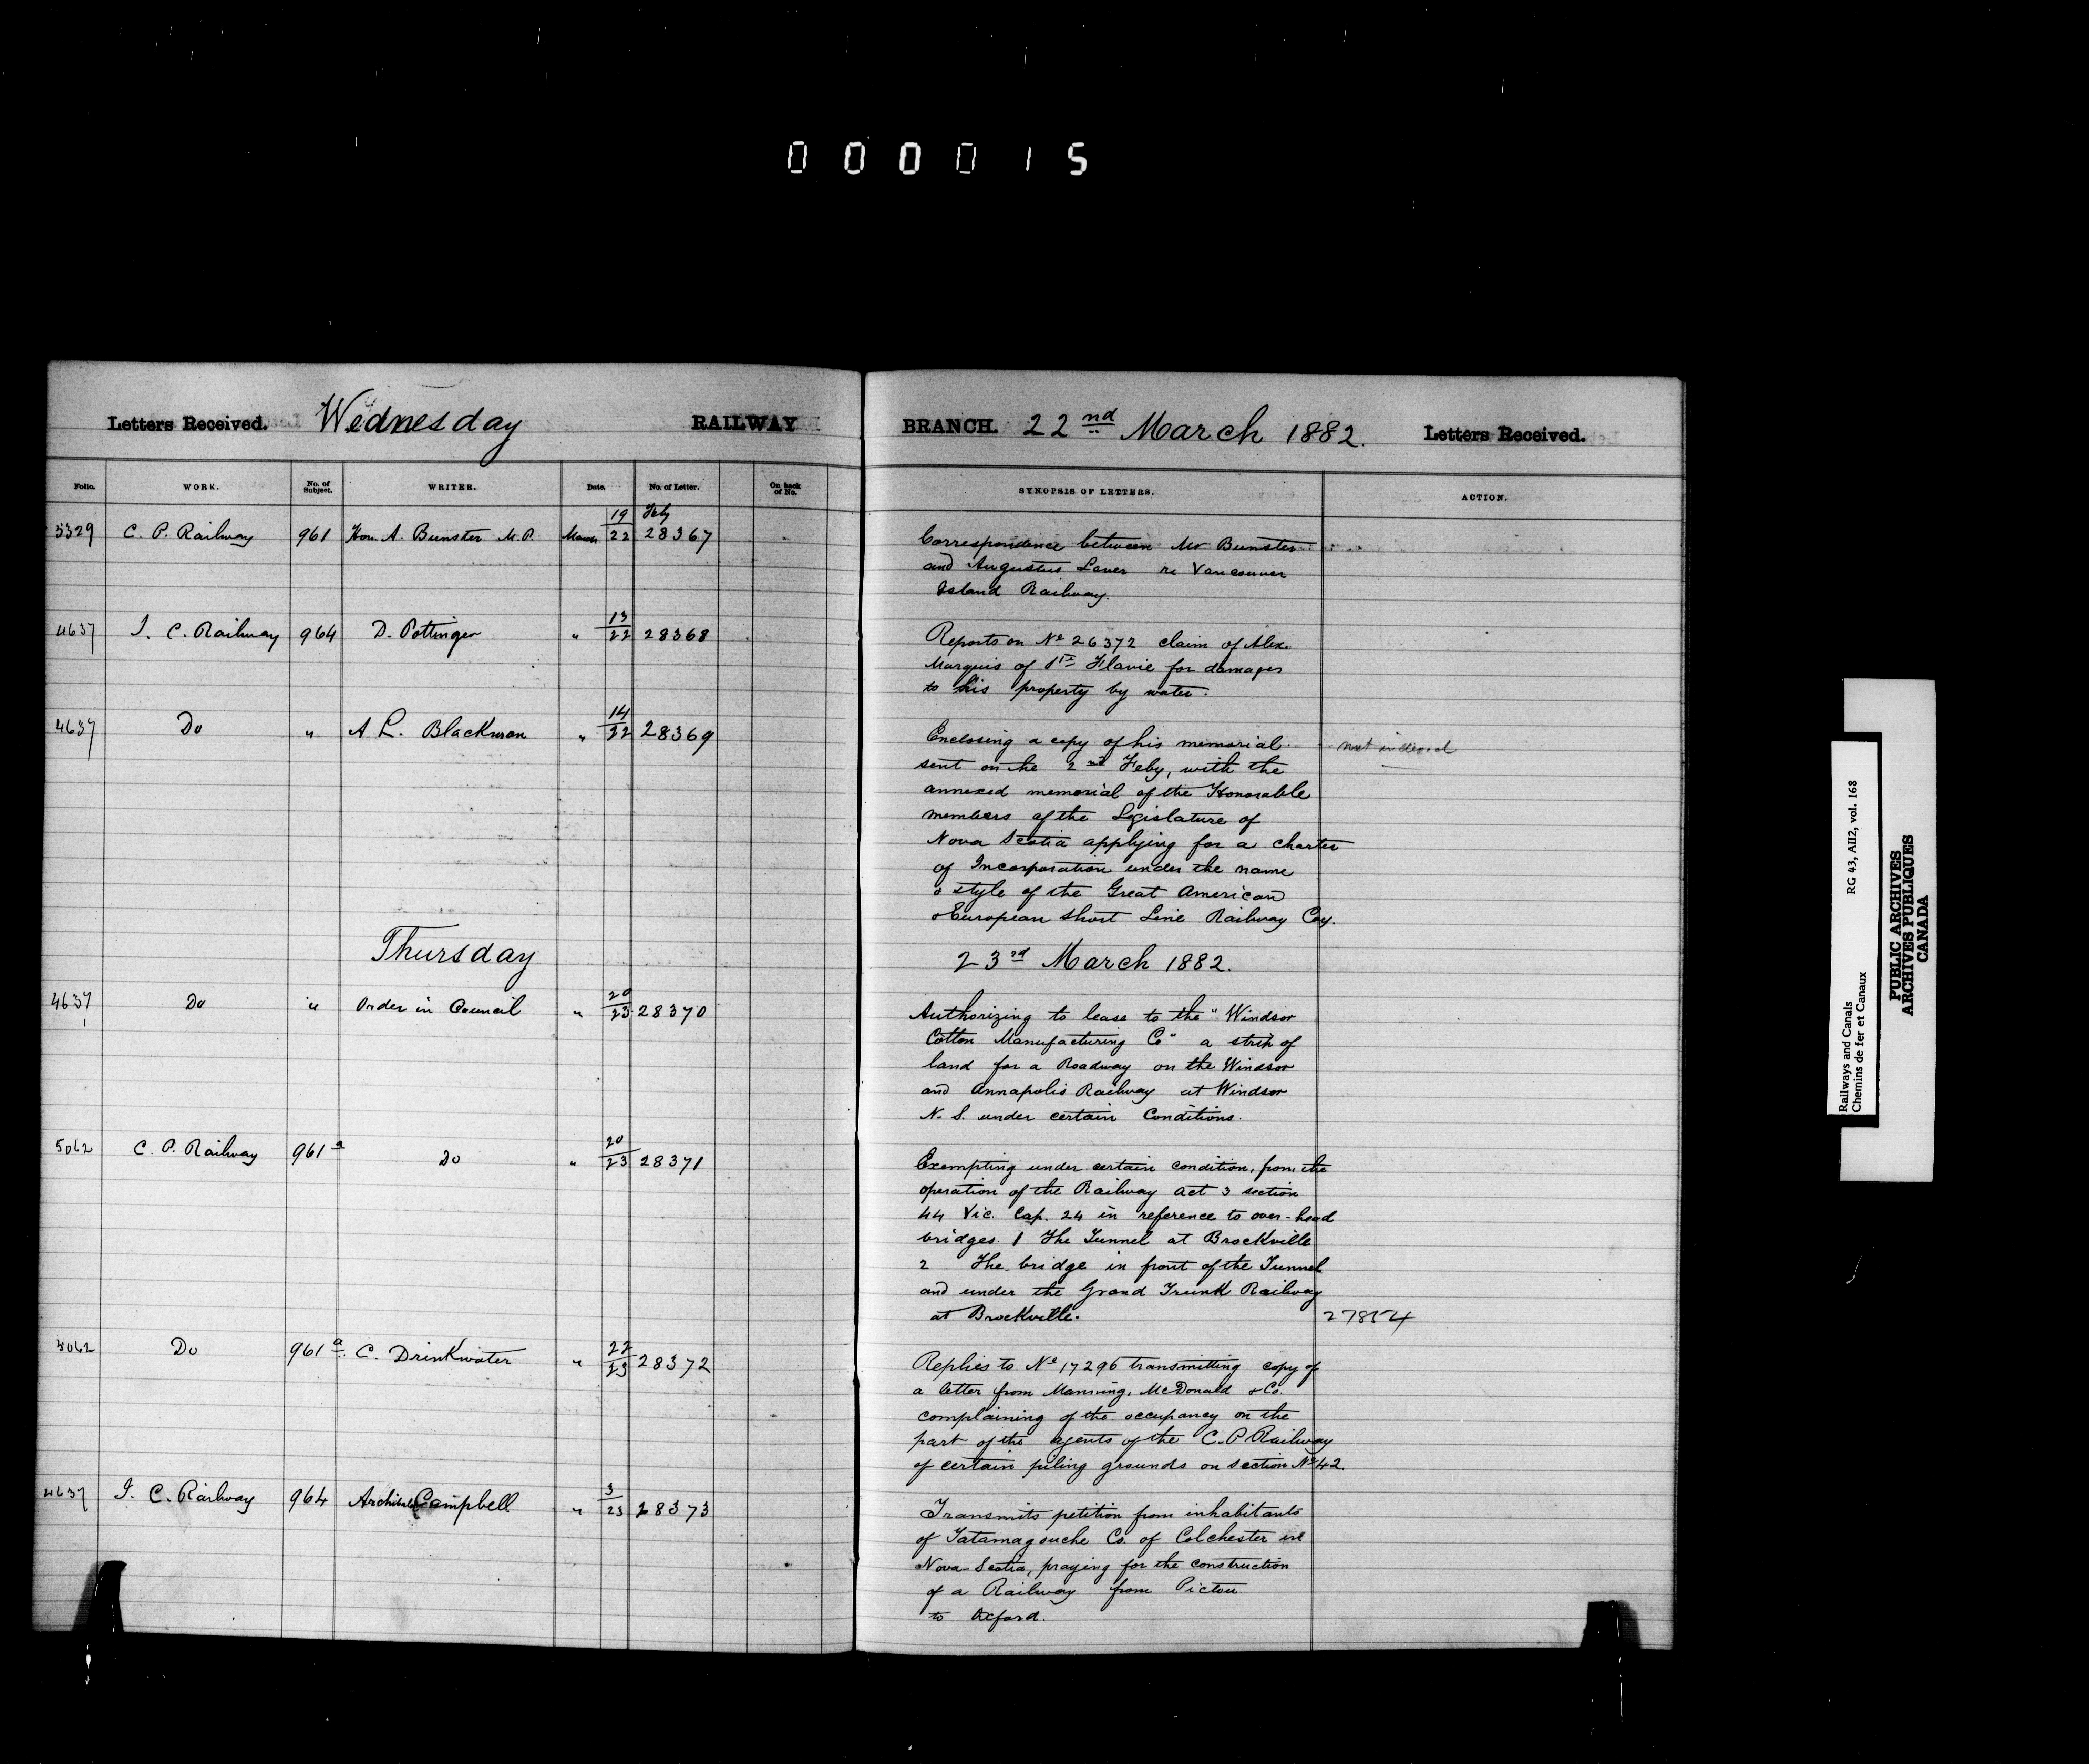 000015
Letters Received. Wednesday RAILWAY BRANCH. 22nd March 1882. Letters Received.
Folio. WORK. No. of Subject. WRITER. Date. No. of Letter. On back of No. SYNOPSIS OF LETTERS. ACTION.
5329 C. P. Railway 961 Hon. A. Bunster M.P. March 19 Feby / 22 28367
Correspondence between Mr Bunster
and Augustus Laver re Vancouver
Island Railway.
4637 I. C. Railway 964 D. Pottinger " 13/22 28368
Reports on No 26372 claim of Alex.
Marquis of Ste Flavie for damages
to his property by water.
4637 Do " A L. Blackman " 14/22 28369
Enclosing a copy of his memorial
sent on the 2nd Feby, with the
annexed memorial of the Honorable
members of the Legislature of
Nova Scotia applying for a charter
of Incorporation under the name
& style of the Great American
& European Short Line Railway Coy.
not indexed
Thursday 23rd March 1882.
4637 Do " Order in Council " 20/23 28370
Authorizing to lease to the "Windsor
Cotton Manufacturing Co" a strip of
land for a Roadway on the Windsor
and Annapolis Railway at Windsor
N. S. under certain Conditions.
5062 C. P. Railway 961a Do " 20/23 28371
Exempting under certain condition, from the
operation of the Railway Act 3 section
44 Vic. Cap. 24 in reference to over-head
bridges. 1 The Tunnel at Brockville
2 The bridge in front of the Tunnel
and under the Grand Trunk Railway
at Brockville.
5062 Do 961a. C. Drinkwater " 22/23 28372
Replies to No 17296 transmitting copy of
a letter from Manning, McDonald & Co.
complaining of the occupancy on the
part of the agents of the C. P. Railway
of certain piling grounds on section No 42.
4637 I. C. Railway 964 Archibald Campbell " 3/23 28373
Transmits petition from inhabitants
of Tatamagouche Co. of Colchester in
Nova-Scotia, praying for the construction
of a Railway from Pictou
to Oxford.
Railways and Canals RG 43, AII2, vol. 168
Chemins de fer et Canaux
PUBLIC ARCHIVES
ARCHIVES PUBLIQUES
CANADA